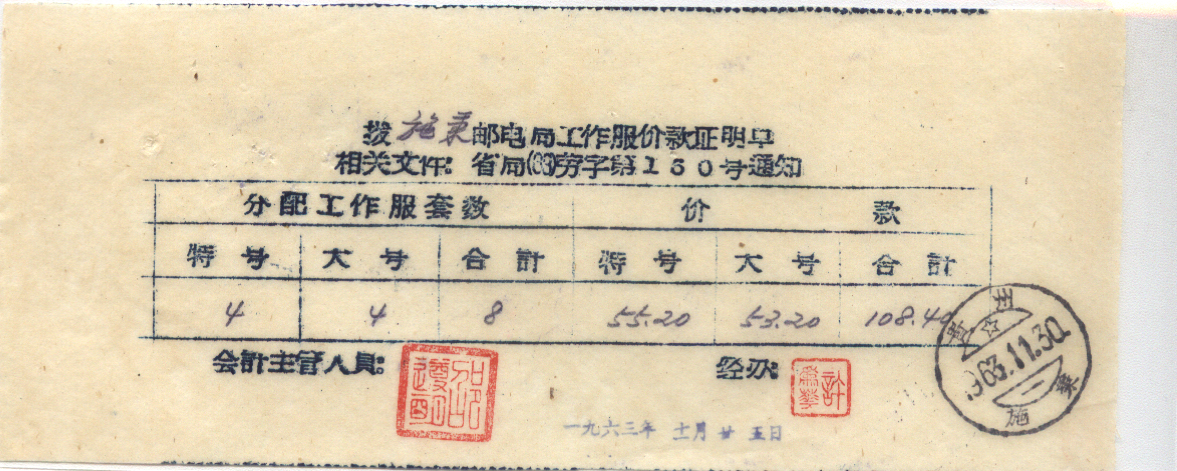 拨施秉邮电局工作服价款证明单
相关文件: 省局(63)劳字第130号通知
分配工作服套数 价 款
特号 大号 合計 特号 大号 合計
4 4 8 55.20 53.20 108.40
会計主管人員: 经办:
一九六三年 十一月 廿五日
贵州
1963.11.30.
施秉